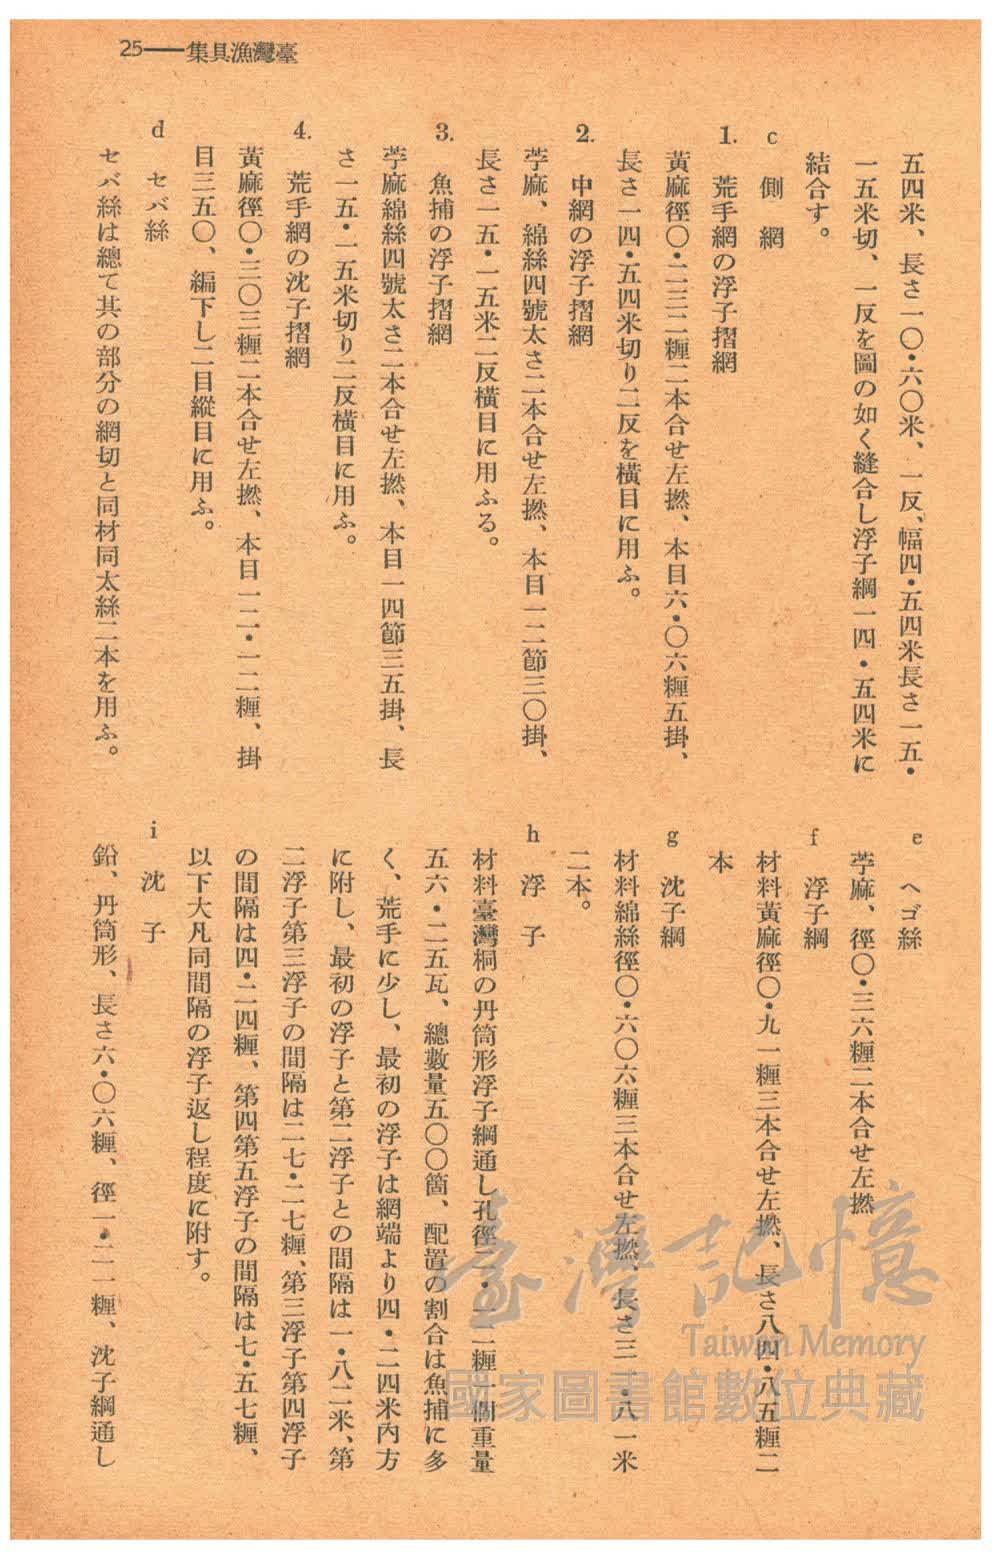 25——集具漁灣臺
五四米、長さ一〇・六〇米、一反、幅四・五四米長さ一五・
一五米切、一反を圖の如く縫合し浮子綱一四・五四米に
結合す。
c 側網
1. 荒手網の浮子摺網
黃麻徑〇・二三二糎二本合せ左撚、本目六・〇六糎五掛、
長さ一四・五四米切り二反を橫目に用ふ。
2. 中網の浮子摺網
苧麻、綿絲四號太さ二本合せ左撚、本目一二節三〇掛、
長さ一五・一五米二反橫目に用ふる。
3. 魚捕の浮子摺網
苧麻綿絲四號太さ二本合せ左撚、本目一四節三五掛、長
さ一五・一五米切り二反橫目に用ふ。
4. 荒手網の沈子摺網
黃麻徑〇・三〇三糎二本合せ左撚、本目一二・一二糎、掛
目三五〇、編下し二目縱目に用ふ。
d セバ絲
セバ絲は總て其の部分の網切と同材同太絲二本を用ふ。
e ヘゴ絲
苧麻、徑〇・三六糎二本合せ左撚
f 浮子綱
材料黃麻徑〇・九一糎三本合せ左撚、長さ八四・八五糎二
本
g 沈子綱
材料綿絲徑〇・六〇六糎三本合せ左撚、長さ三二・八一米
二本。
h 浮子
材料臺灣桐の丹筒形浮子綱通し孔徑二・一二糎一個重量
五六・二五瓦、總數量五〇〇箇、配置の割合は魚捕に多
く、荒手に少し、最初の浮子は網端より四・二四米內方
に附し、最初の浮子と第二浮子との間隔は一・八二米、第
二浮子第三浮子の間隔は二七・二七糎、第三浮子第四浮子
の間隔は四・二四糎、第四第五浮子の間隔は七・五七糎、
以下大凡同間隔の浮子返し程度に附す。
i 沈子
鉛、丹筒形、長さ六・〇六糎、徑一・二一糎、沈子綱通し
臺灣記憶
Taiwan Memory
國家圖書館數位典藏